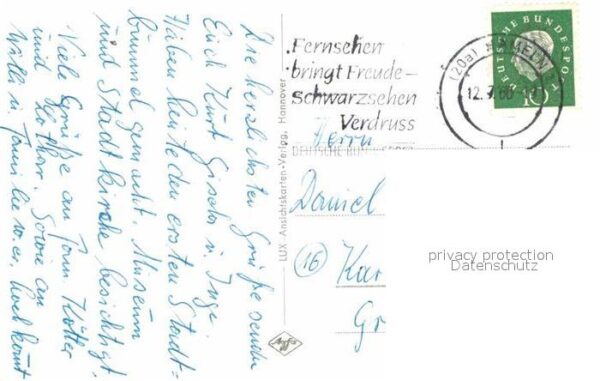 Die herzlichsten Grüße senden
Euch Kurt Gisela u. Inge.
Haben heute den ersten Stadt-
bummel gemacht. Museum
und Stadtkirche besichtigt.
Viele Grüße an Fam. Kötter
und Lothar. Sowie an
Willi u.
LUX-Ansichtskarten-Verlag, Hannover
Agfa
Fernsehen
bringt Freude-
Schwarzsehen
Verdruss
DEUTSCHE BUNDESPOST
(20a)
12.7.60
DEUTSCHE BUNDESPOST
10
Herrn
Daniel
(16) Kar
Gr
privacy protection
Datenschutz